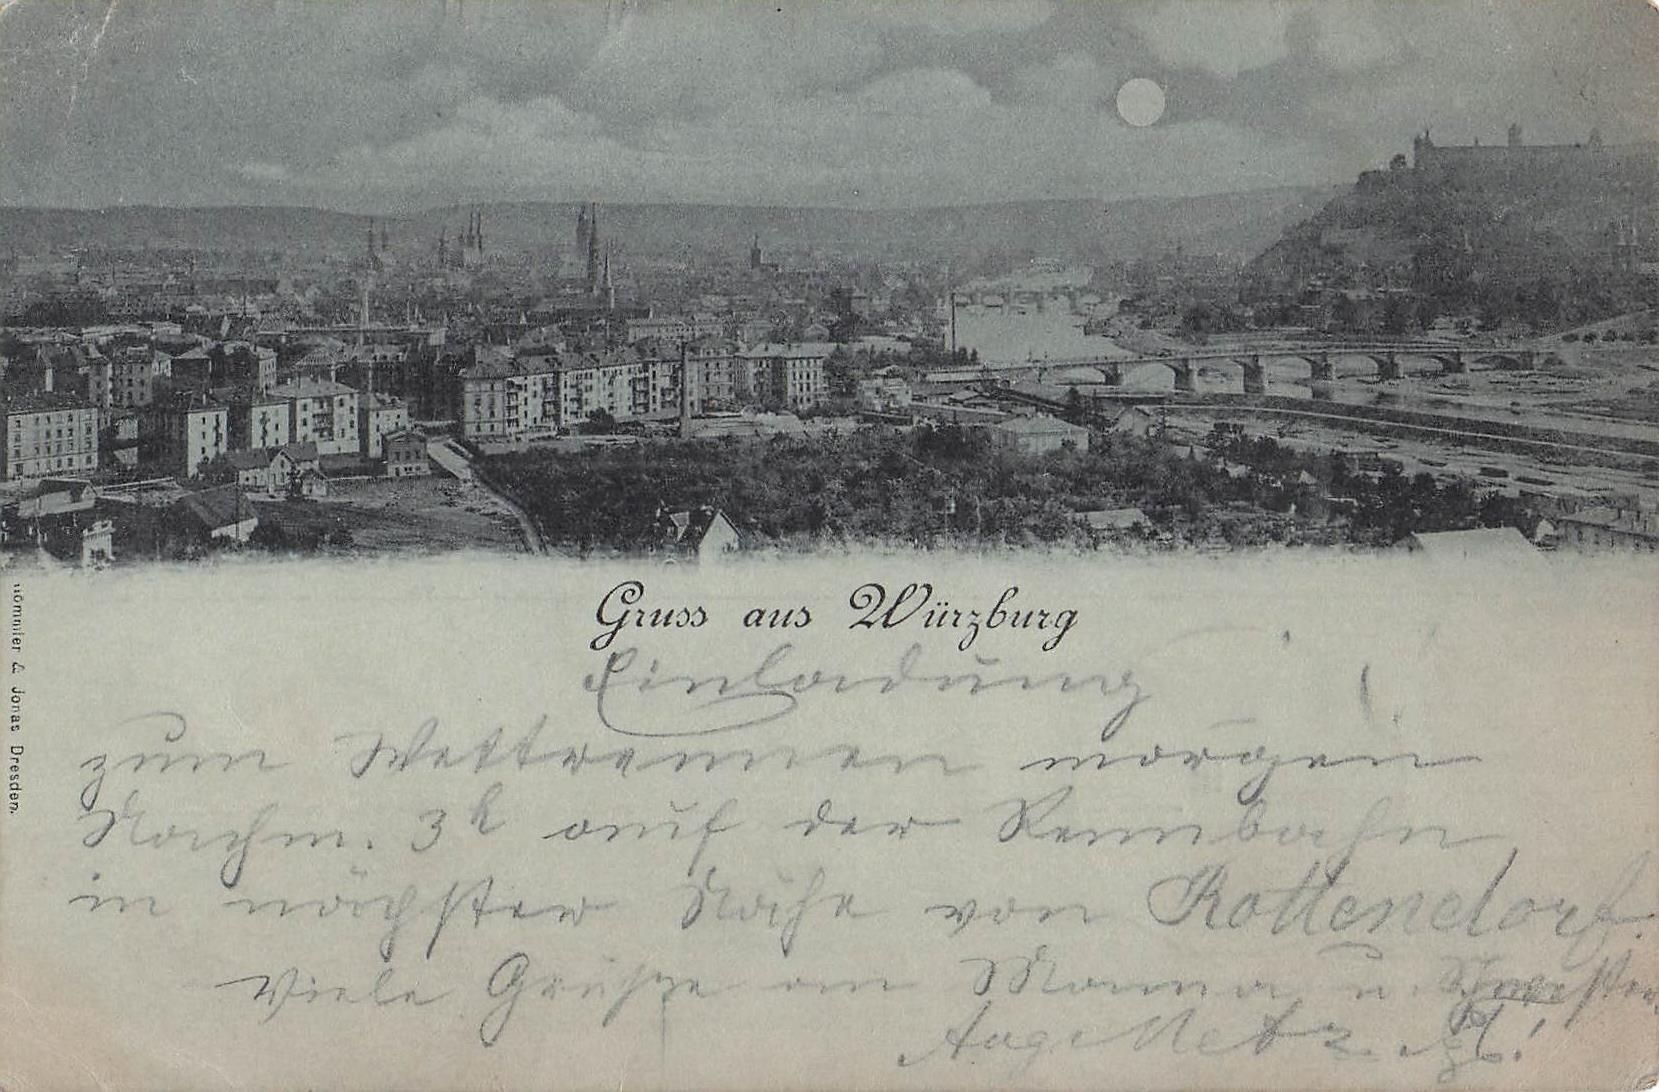 Gruss aus Würzburg
Einladung
zum Wettrennen morgen
Nachm. 3h auf der Rennbahn
in nächster Nähe von Rottendorf.
Viele Grüße an Mama u. Schwester
Aug. Metz
Römmler & Jonas Dresden.